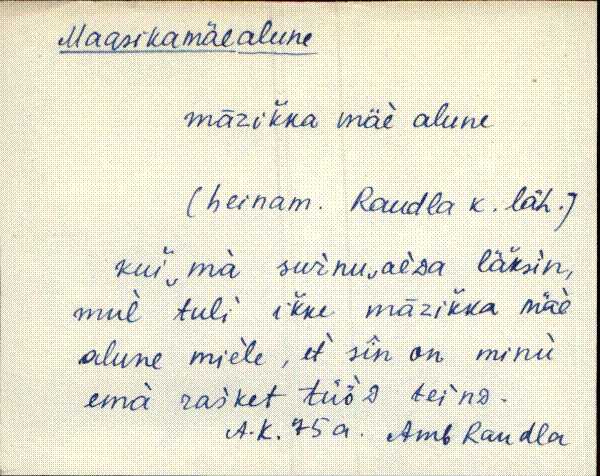 Maasikamäealune
māzik̆ka mäè alune
(heinam. Raudla k. läh.)
kui‿mà surnu‿aèda läksìn,
mul̀ tuli ik̆ke māzik̆ka mäè
alune mièle, et̀ sîn on minù
emà rasket tüö̀d teind.
A.K. 75 a. Amb Raudla